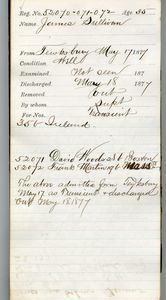 Reg. No. 52070-071-072 Age 35
Name James Sullivan
From Tewksbury May 17 1877
Condition Well
Examined Not seen 187
Discharged May 18 1877
Removed Out
By whom Supt
For Nos. Transient
35 b Ireland
52071 David Woods 28 b Boston
52072 Frank Martin 19 b Mass
The above admitted from Tewksbury
May 17 as Transient & discharged
Out May 18 1877